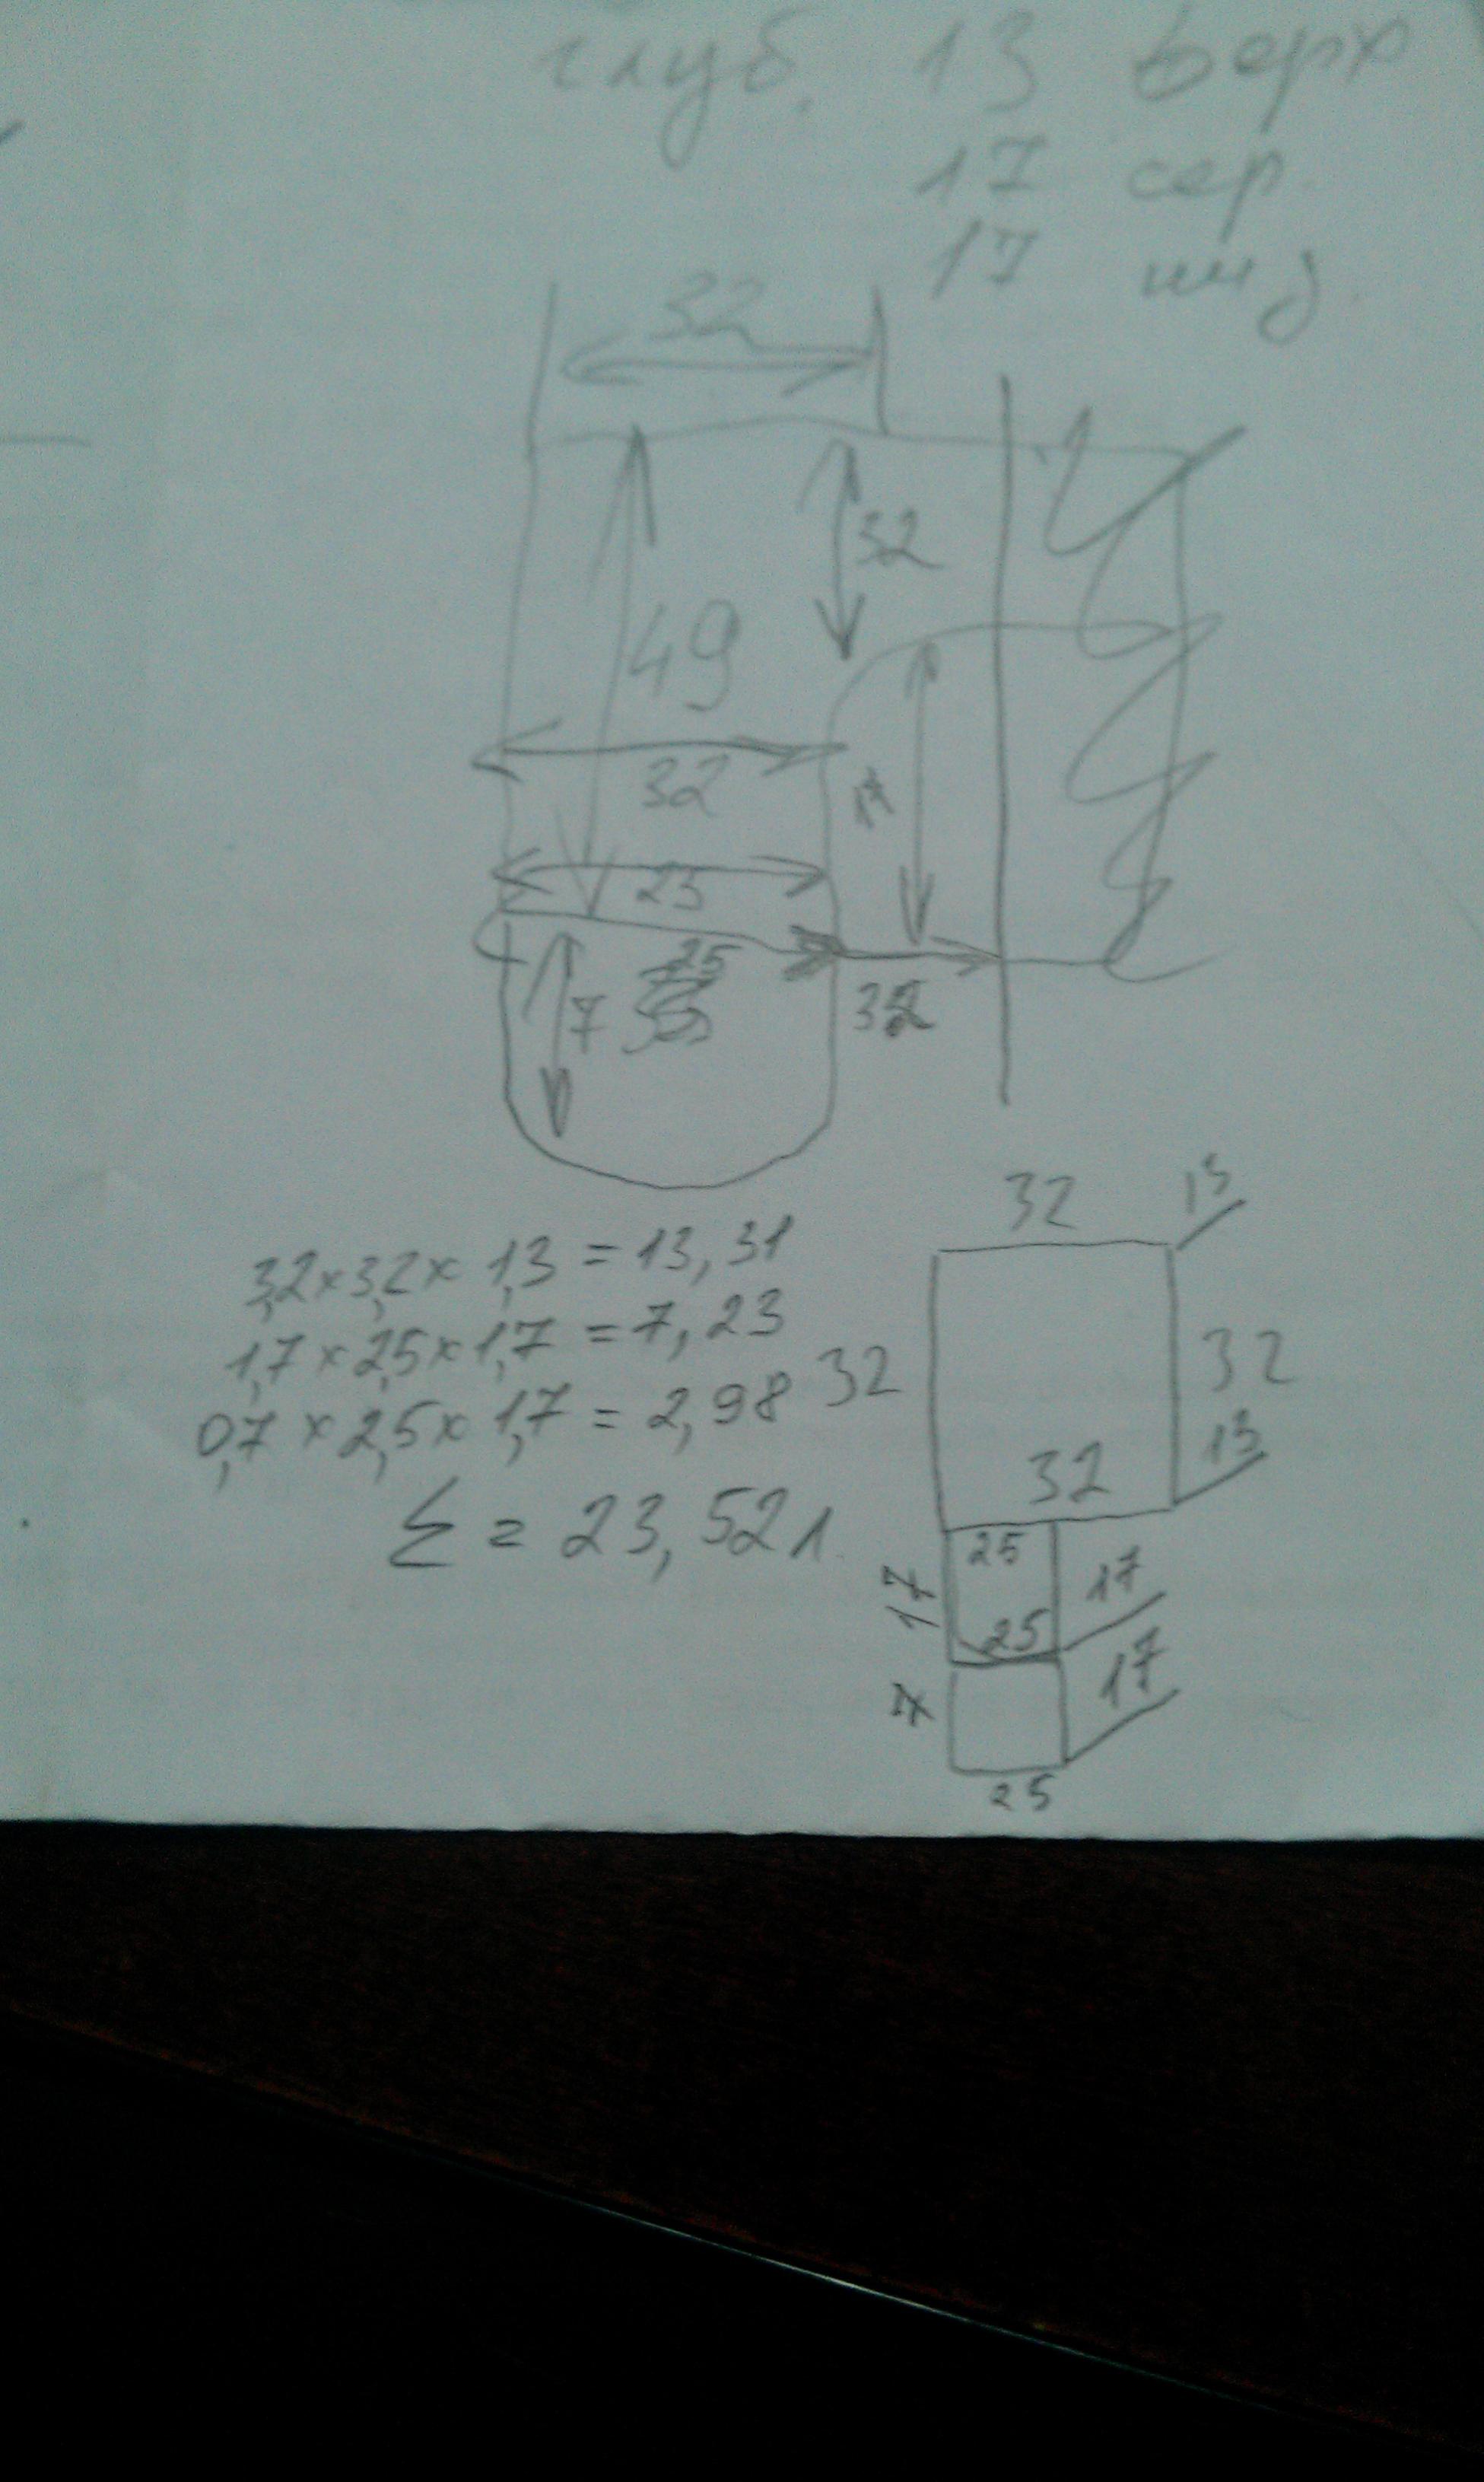 глуб. 13 верх
17 сер.
17 низ.
32
32
49
32
17
23
25
7
32
32
13
3,2 х 3,2 х 1,3 = 13,31
1,7 х 2,5 х 1,7 = 7,23
32
32
0,7 х 2,5 х 1,7 = 2,98
13
32
Σ = 23,52 л.
25
17
17
25
17
7
25